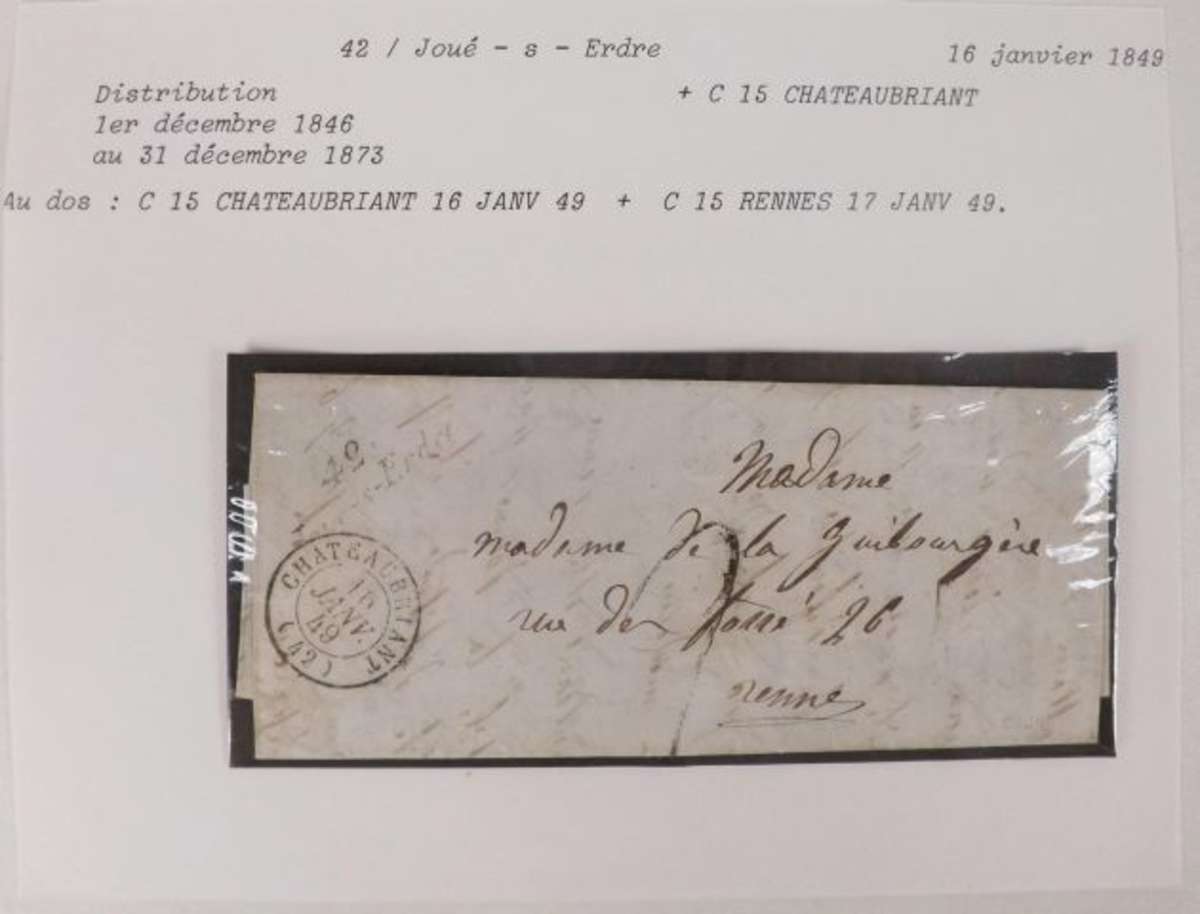 42 / Joué - s - Erdre
16 janvier 1849
Distribution
+ C 15 CHATEAUBRIANT
1er décembre 1846
au 31 décembre 1873
Au dos : C 15 CHATEAUBRIANT 16 JANV 49 + C 15 RENNES 17 JANV 49.
42
s-Erdre
CHATEAUBRIANT
16
JANV.
49
(42)
Madame
madame de la Guibourgère
rue des fossé 26
renne